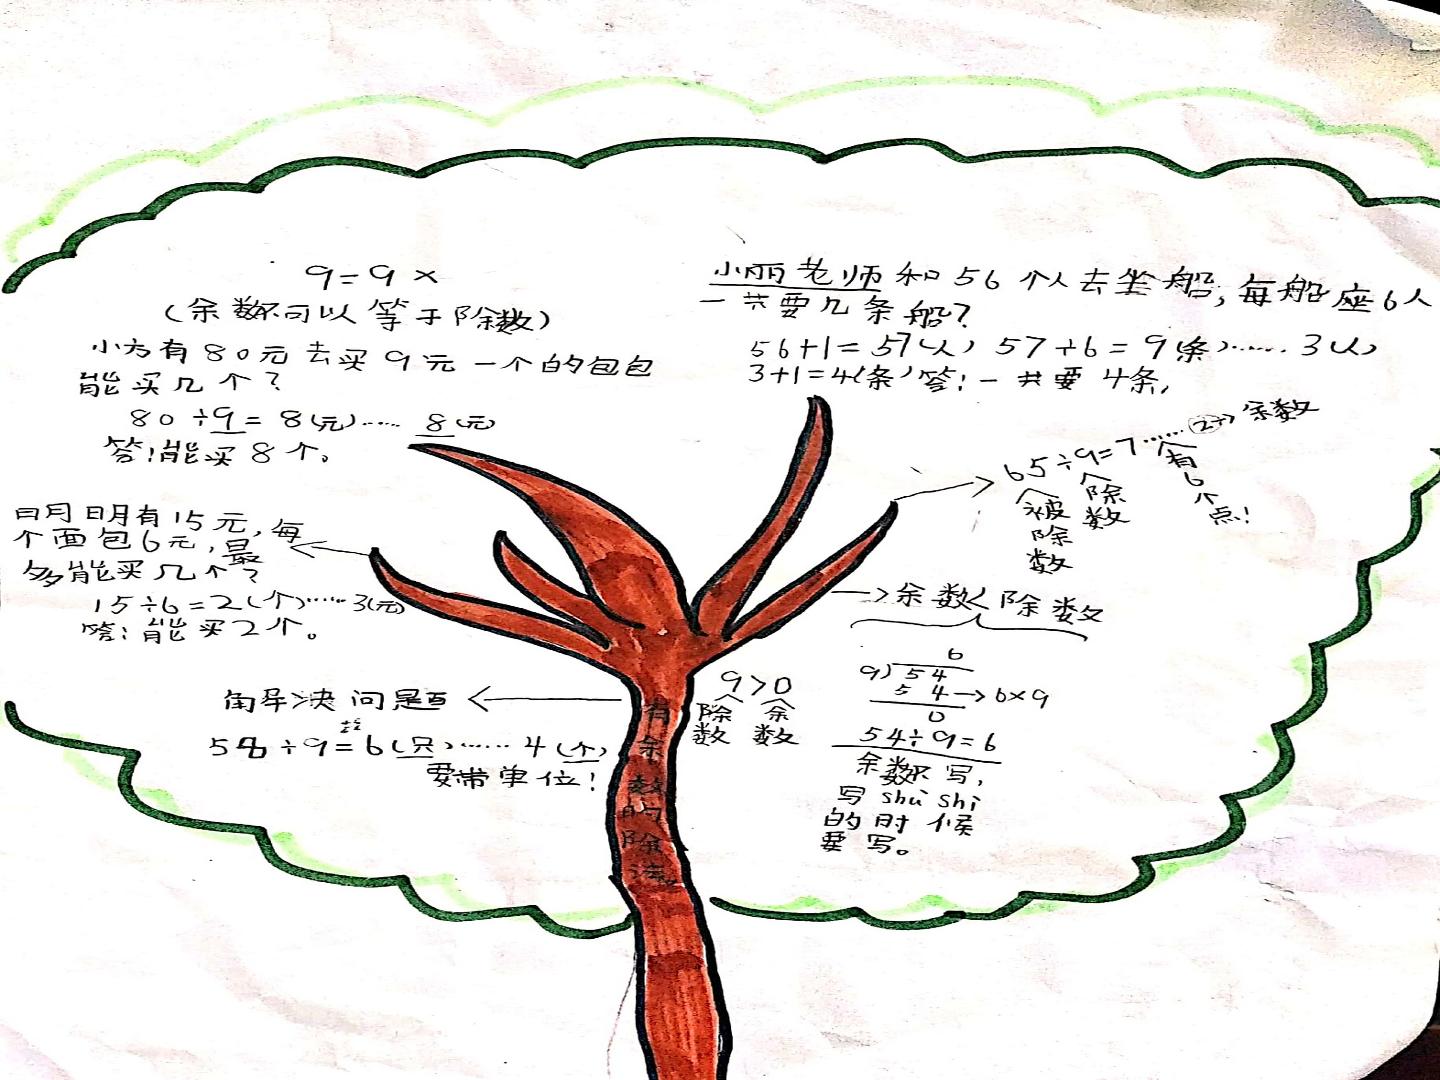 9=9 ×
(余数不可以等于除数)
小方有80元去买9元一个的包包
能买几个?
80÷9=8(元)……8(元)
答:能买8个。
小丽老师和56个人去坐船,每船座6人
一共要几条船?
56+1=57(人) 57÷6=9(条)……3(人)
3+1=4(条)答:一共要4条。
65÷9=7……②→余数
被除数
除数
有6个点!
明明有15元,每
个面包6元,最
多能买几个?
15÷6=2(个)……3(元)
答:能买2个。
→余数<除数
6
9)54
54→6×9
0
54÷9=6
余数不写,
写shù shì
的时候
要写。
解决问题
÷9=6(只)……4(个)
要带单位!
9>0
除数
余数
有余数的除法